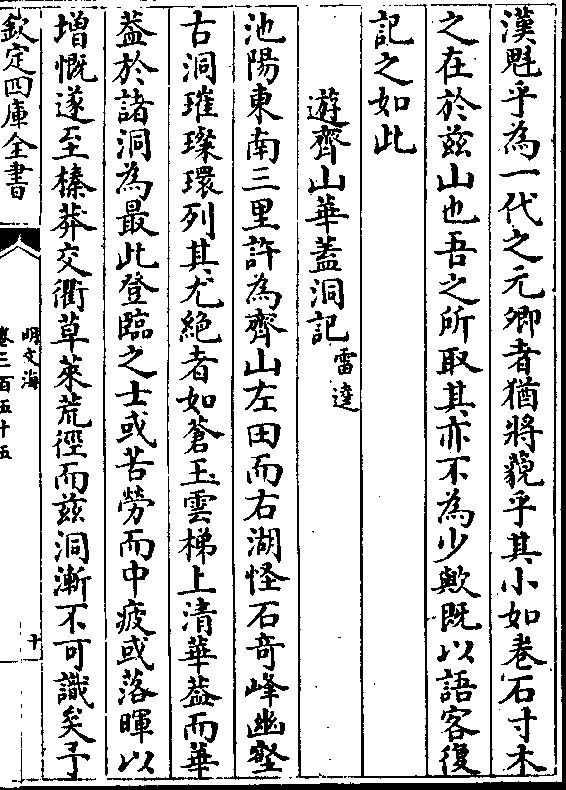 漢魁乎為一代之元卿者猶將藐乎其小如卷石寸木
之在於兹山也吾之所取其亦不為少歟既以語客復
記之如此
遊齊山華蓋洞記 雷逵
池陽東南三里許為齊山左田而右湖怪石竒峰幽壑
古洞璀璨環列其尤絶者如蒼玉雲梯上清華葢而華
葢於諸洞為最此登臨之士或苦勞而中疲或落暉以
增慨遂至榛莽交衢草萊荒徑而兹洞漸不可識矣予
欽定四庫全書
明文海
卷三百五十五
十